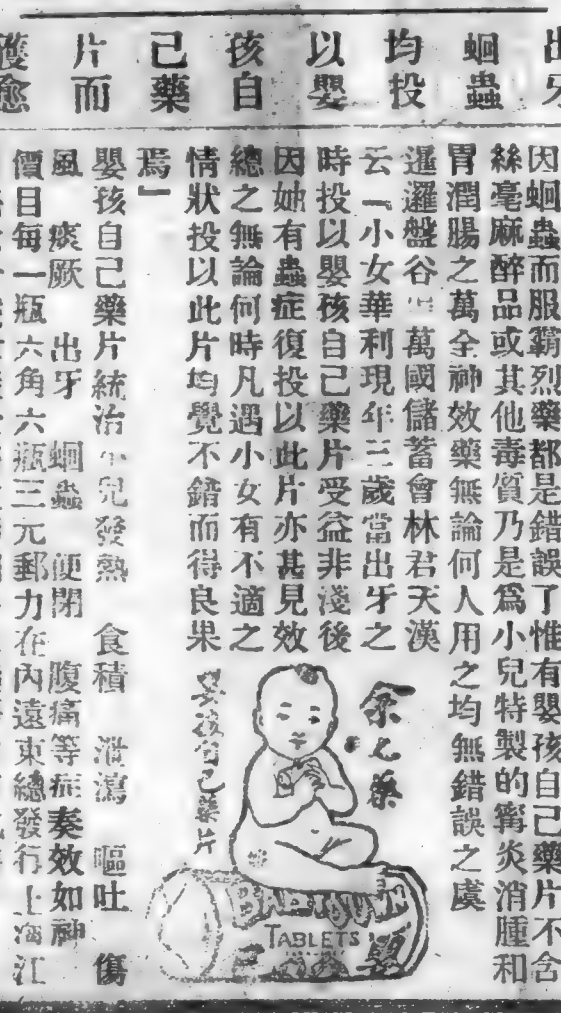 出牙
蛔蟲
均投
以嬰
孩自
己藥
片而
獲愈
因蛔蟲而服霸烈藥都是錯誤了惟有嬰孩自己藥片不含
絲毫麻醉品或其他毒質乃是爲小兒特製的寗炎消腫和
胃潤腸之萬全神效藥無論何人用之均無錯誤之虞
暹邏盤谷 萬國儲蓄會林君天漢
云「小女華利現年三歲當出牙之
時投以嬰孩自己藥片受益非淺後
因她有蟲症復投以此片亦甚見效
總之無論何時凡遇小女有不適之
情狀投以此片均覺不錯而得良果
焉」
嬰孩自己藥片統治小兒發熱 食積 泄瀉 嘔吐 傷
風 痰厥 出牙 蛔蟲 便閉 腹痛等症奏效如神
價目每一瓶六角六瓶三元郵力在內遠東總發行上海江
余之藥
嬰孩自己藥片
TABLETS